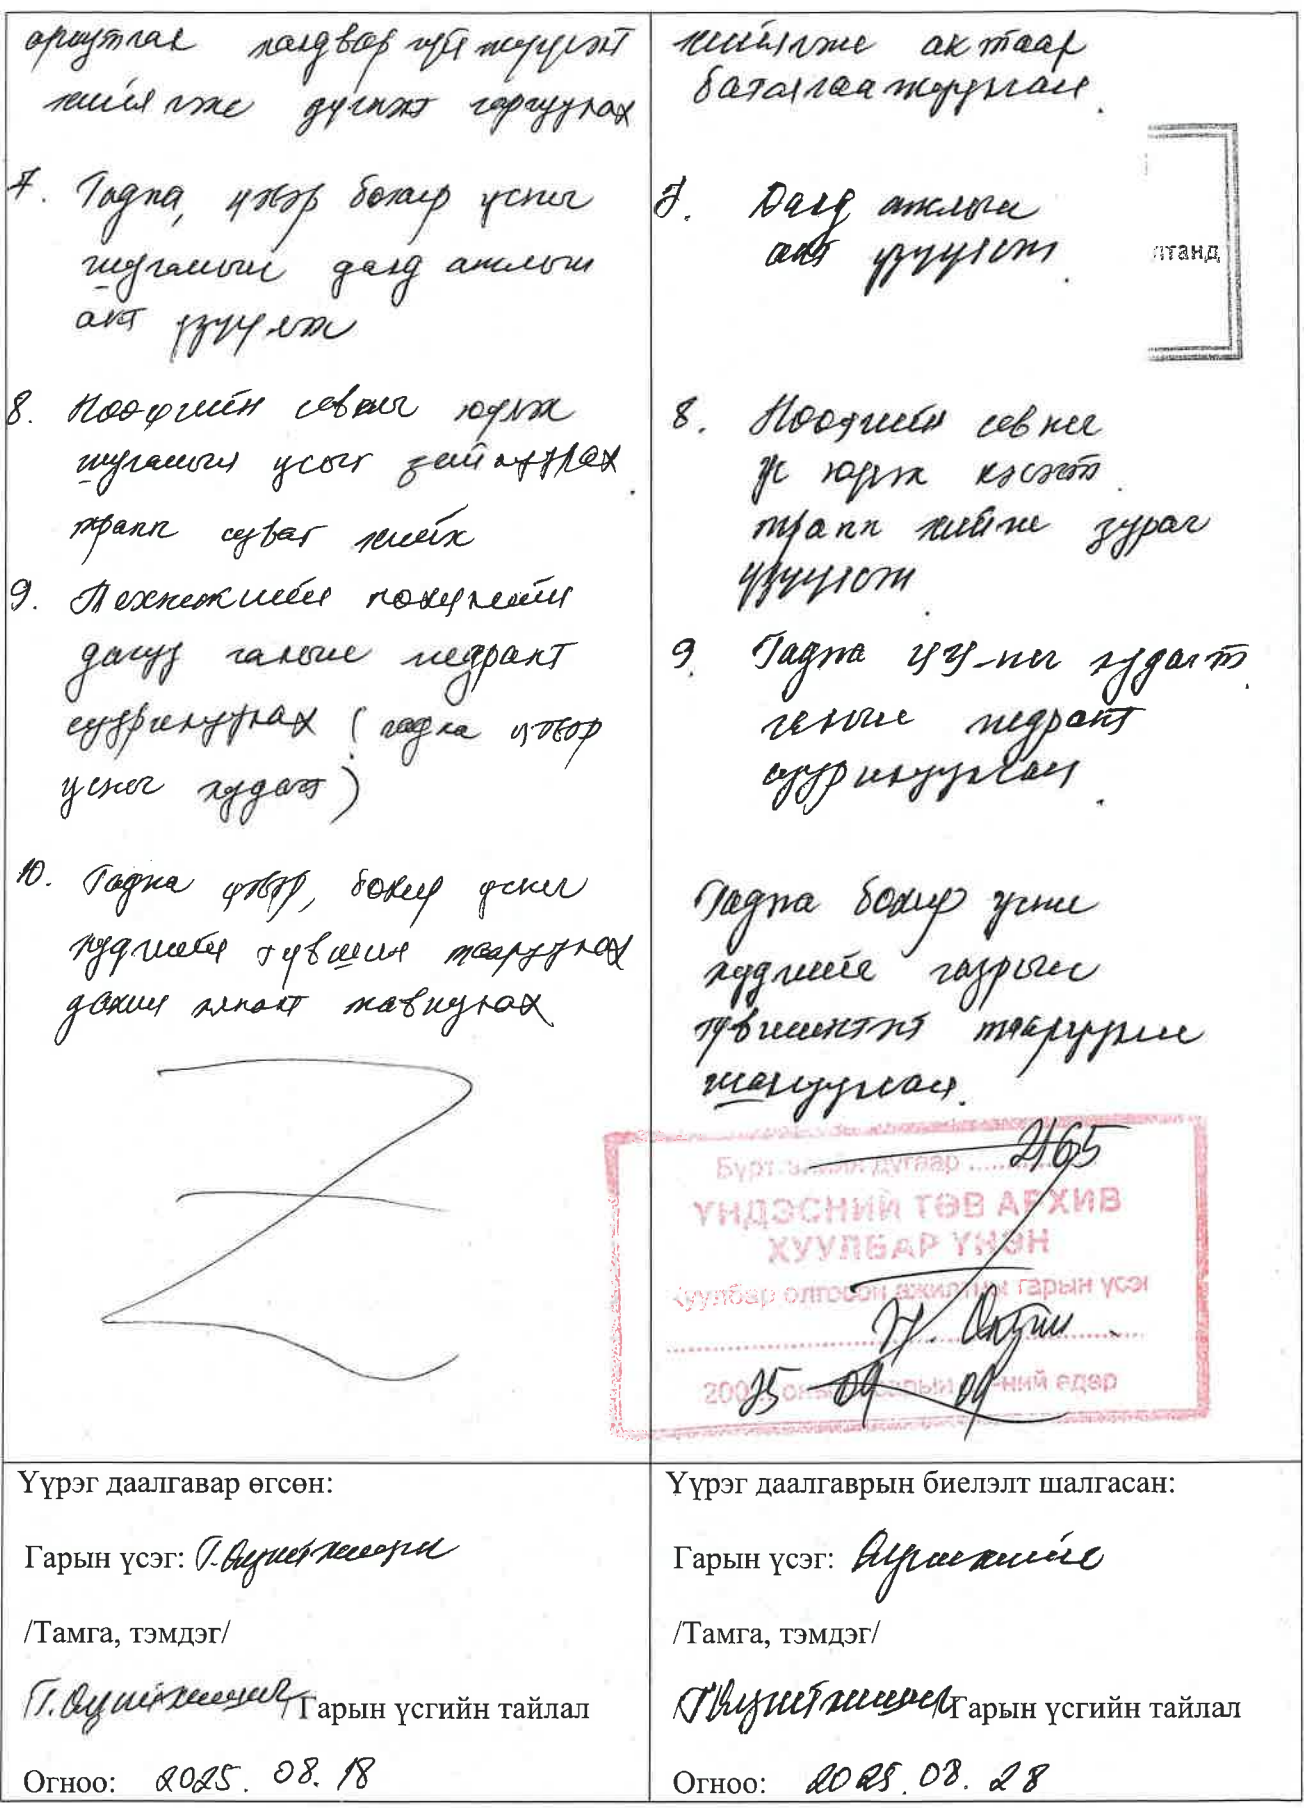 хийлгэж дүгнэлт гаргуулах
7. Гадна, цэвэр бохир усны
шугамын далд ажлын
акт үзүүлэх
8. Ноосгийн савны юүлэх
шугамын усыг зайлуулах
трапп суваг хийх
9. Техникийн нөхцлийн
дагуу галын гидрант
суурилуулах (гадна цэвэр
усны худагт)
10. Гадна цэвэр, бохир усны
худгийн түвшин тааруулах
дахин хяналт тавиулах
хийлгэж актаар
баталгаажуулсан.
7. Далд ажлын
акт үзүүлсэн.
лтанд
8. Ноосгийн савны
ус юүлэх хэсэгт
трапп хийж зураг
үзүүлсэн.
9. Гадна ЦУ-ны худагт
галын гидрант
суурилуулсан.
Гадна бохир усны
худгийг газрын
түвшинтэй тааруулж
шалгуулсан.
Бүртгэлийн дугаар 2165
ҮНДЭСНИЙ ТӨВ АРХИВ
ХУУЛБАР ҮНЭН
Хуулбар олгосон ажилтны гарын үсэг
200 25 оны 09 сарын 09-ний өдөр
Үүрэг даалгавар өгсөн:
Гарын үсэг:
/Тамга, тэмдэг/
/Гарын үсгийн тайлал
Огноо: 2025. 08. 18
Үүрэг даалгаврын биелэлт шалгасан:
Гарын үсэг:
/Тамга, тэмдэг/
/Гарын үсгийн тайлал
Огноо: 2025. 08. 28